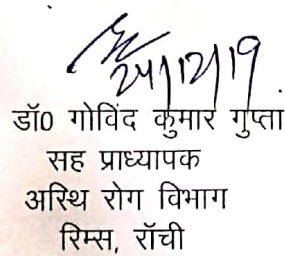 24/12/19
डॉ0 गोविंद कुमार गुप्ता
सह प्राध्यापक
अस्थि रोग विभाग
रिम्स, रॉची